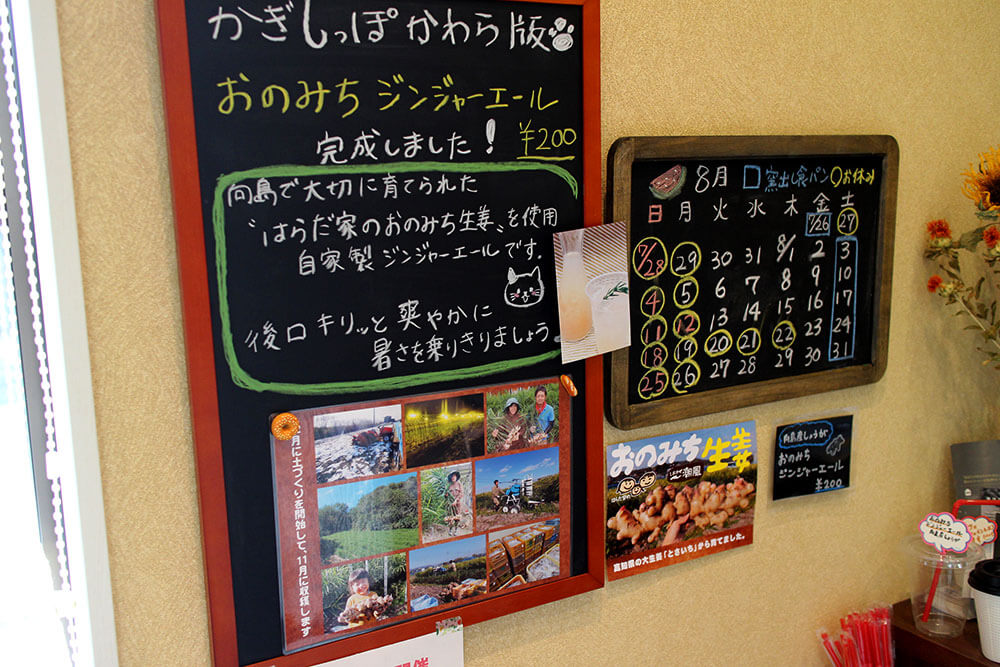 かぎしっぽかわら版
おのみちジンジャーエール
完成しました! ¥200
向島で大切に育てられた
"はらだ家のおのみち生姜"を使用
自家製ジンジャーエールです。
後口キリッと爽やかに
暑さを乗りきりましょう
月に土づくりを開始して、11月に収穫します
8月 □窯出し食パン ○お休み
日 月 火 水 木 金 土
7/26 27
7/28 29 30 31 8/1 2 3
4 5 6 7 8 9 10
11 12 13 14 15 16 17
18 19 20 21 22 23 24
25 26 27 28 29 30 31
おのみち生姜
潮風
高知県の大生姜「とさいち」から育てました。
向島産しょうが
おのみち
ジンジャーエール
¥200
開催